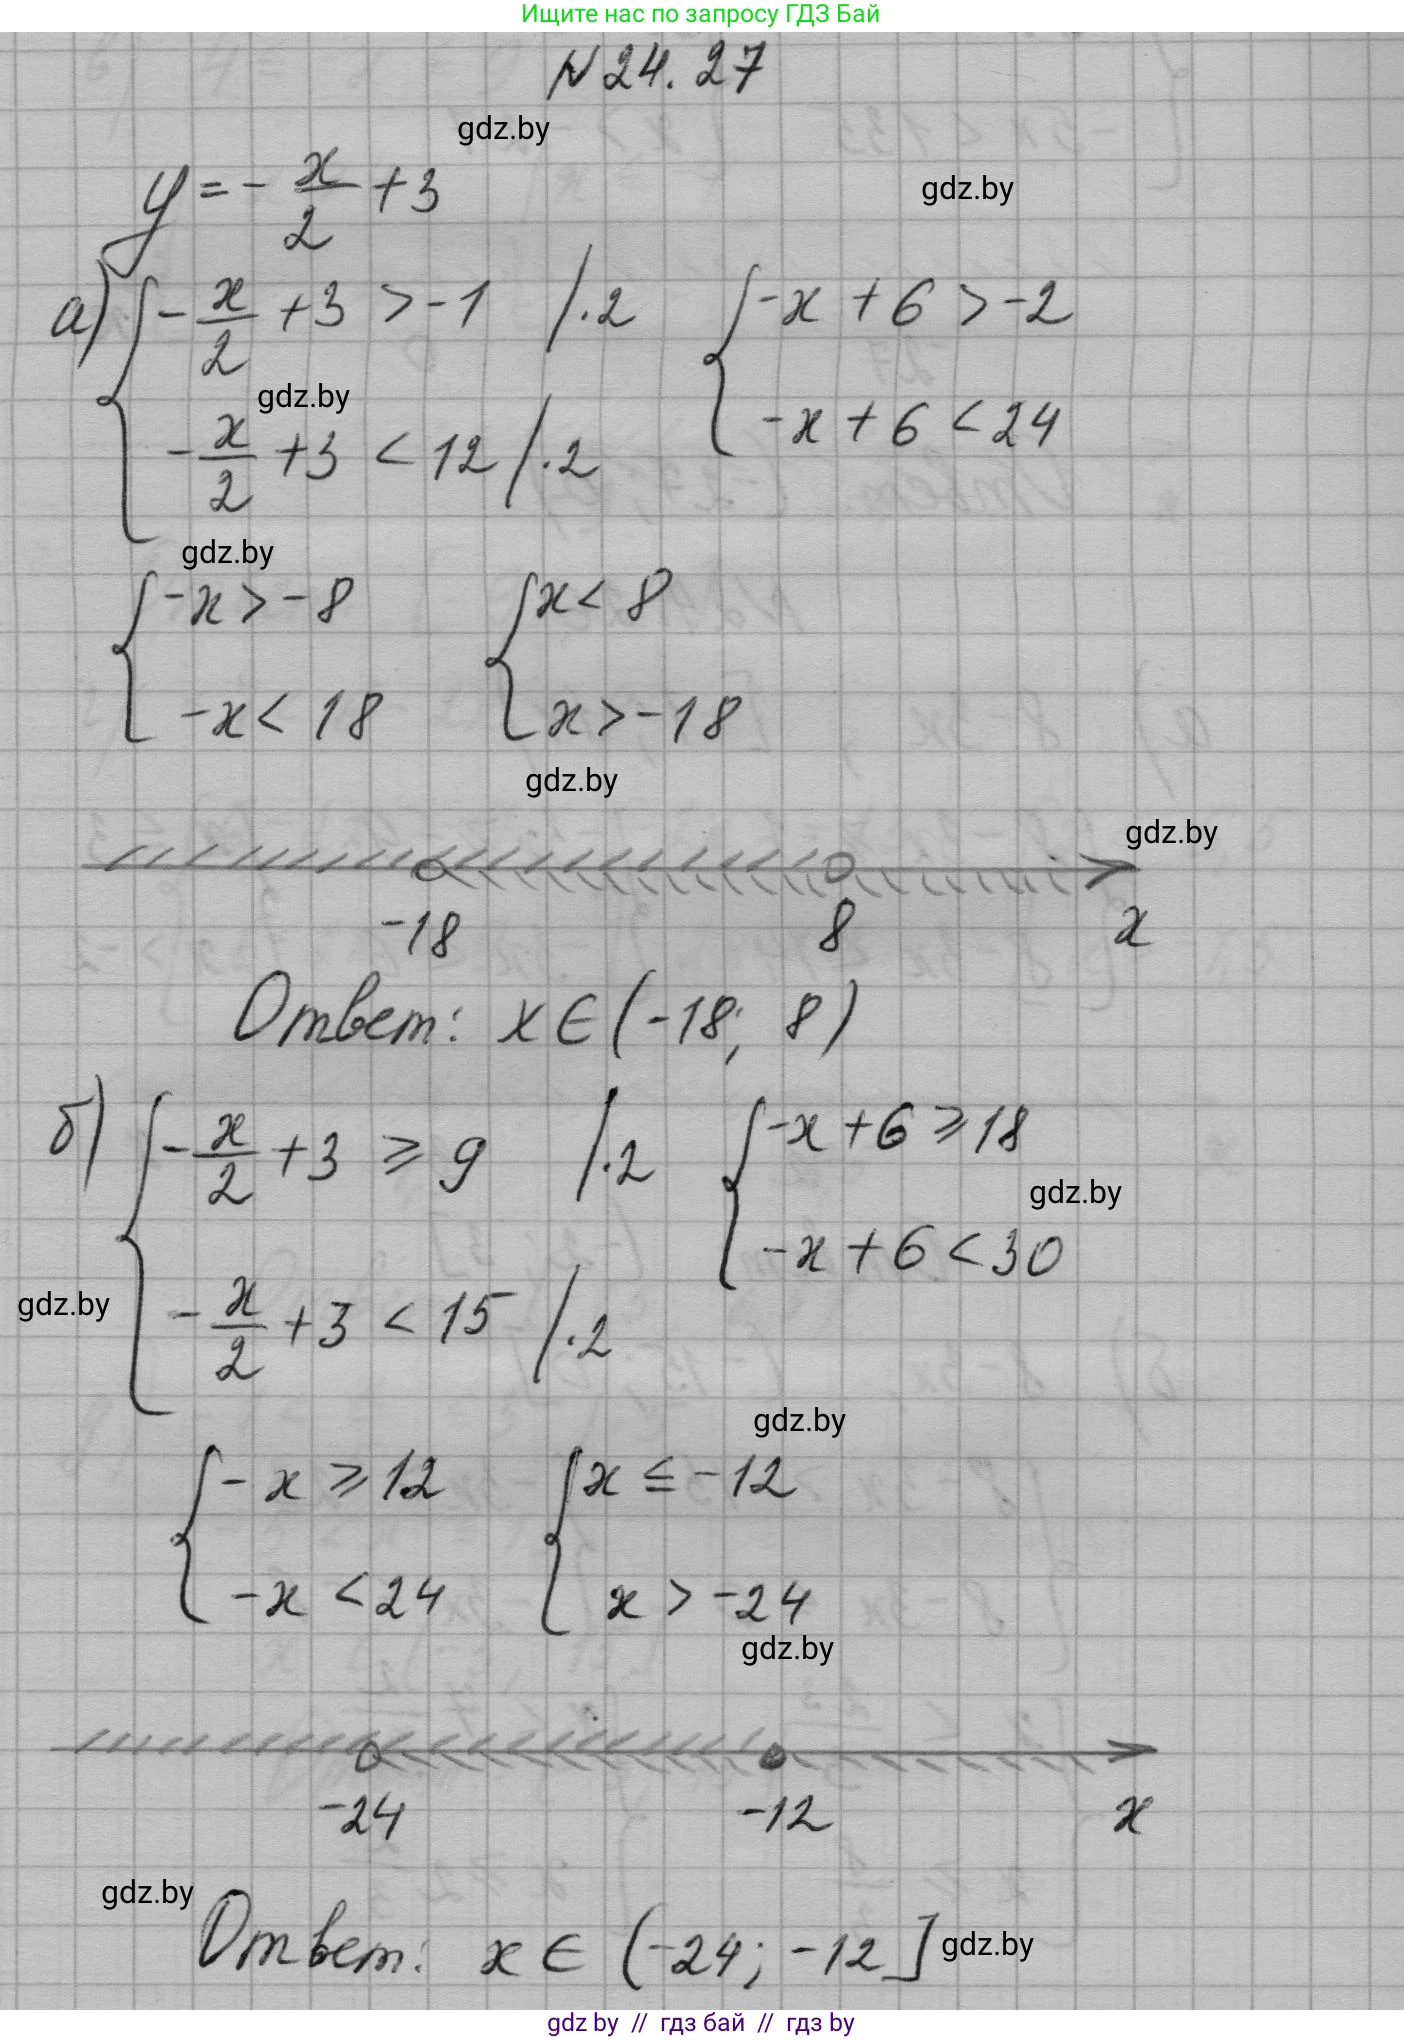 Ищите нас по запросу ГДЗ Бай
N 24.27
gdz.by
y = - x/2 + 3
gdz.by
а) { - x/2 + 3 > -1 | ·2 { -x + 6 > -2
gdz.by
- x/2 + 3 < 12 | ·2 -x + 6 < 24
gdz.by
{ -x > -8 { x < 8
-x < 18 x > -18
gdz.by
gdz.by
-18 8 x
Ответ: x ∈ (-18; 8)
б) { - x/2 + 3 ⩾ 9 | ·2 { -x + 6 ⩾ 18
gdz.by
-x + 6 < 30
gdz.by
- x/2 + 3 < 15 | ·2
gdz.by
{ -x ⩾ 12 { x ≤ -12
-x < 24 x > -24
gdz.by
-24 -12 x
gdz.by
Ответ: x ∈ (-24; -12]
gdz.by
gdz by // гдз бай // гдз by